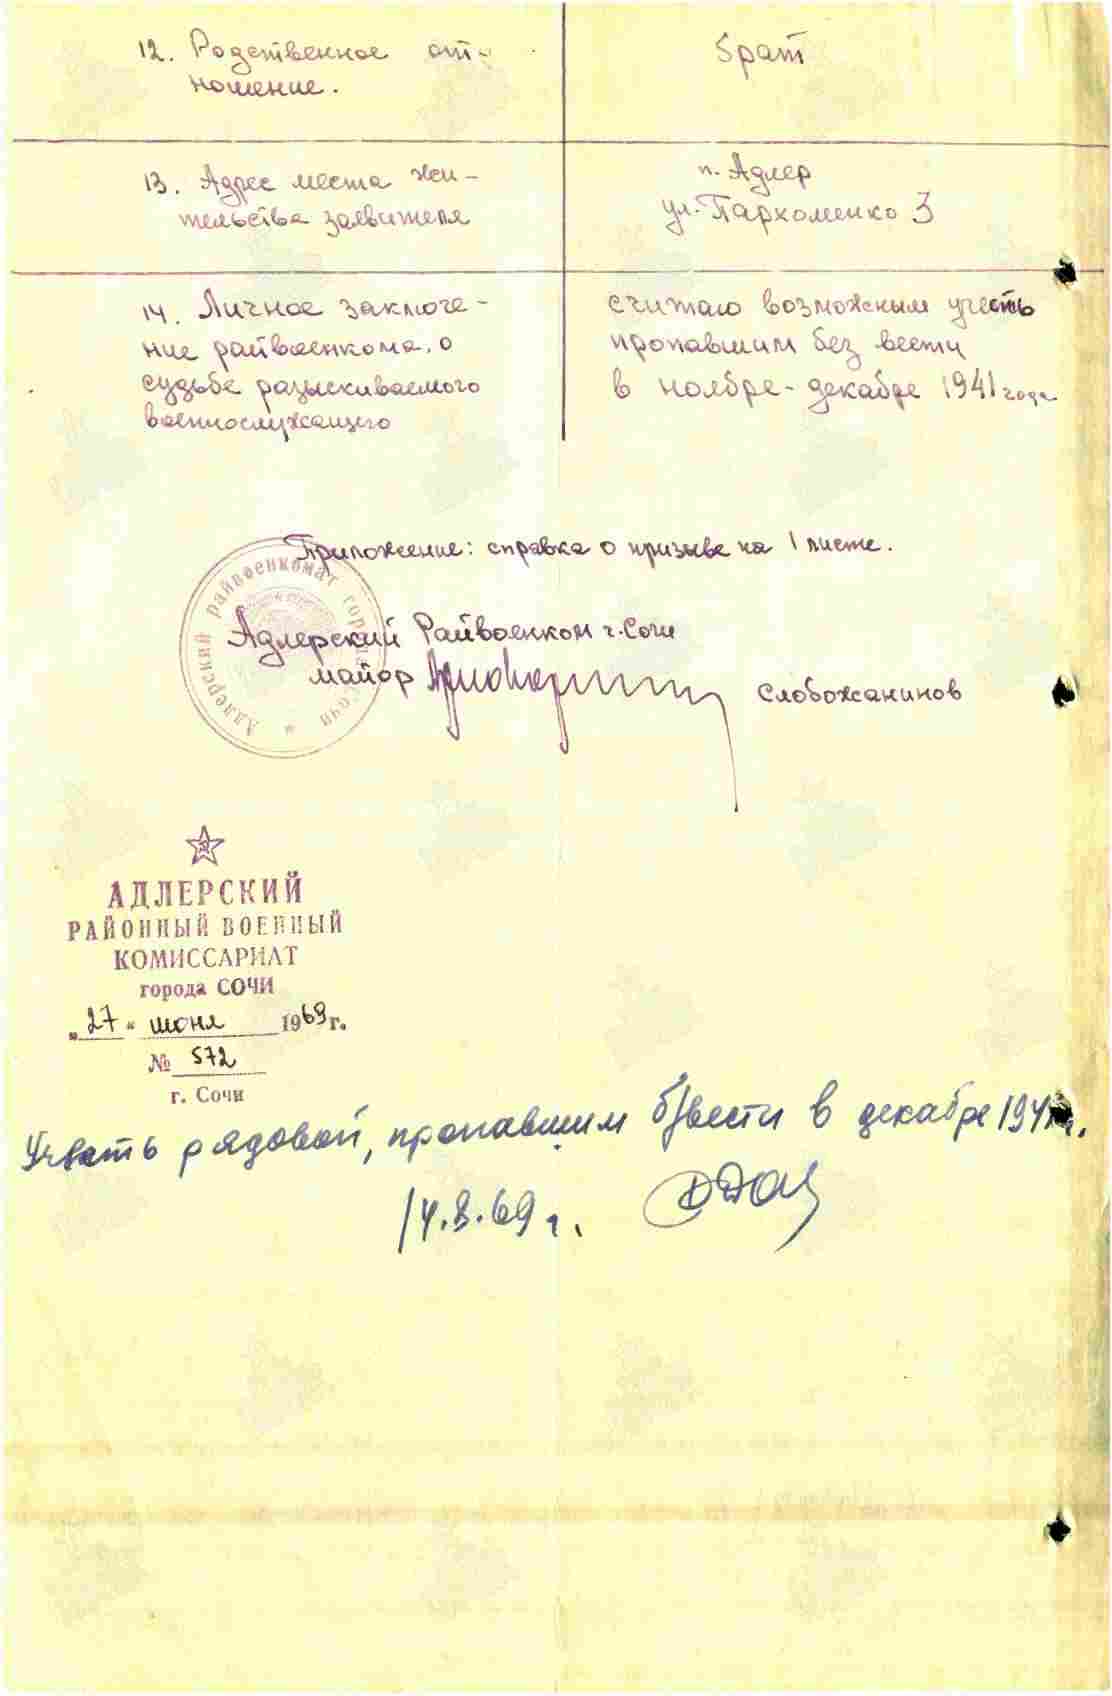 12. Родственное от-
ношение.
брат
13. Адрес места жи-
тельства заявителя
п. Адлер
ул. Пархоменко 3
14. Личное заключе-
ние райвоенкома, о
судьбе разыскиваемого
военнослужащего
считаю возможным учесть
пропавшим без вести
в ноябре-декабре 1941 года
Приложение: справка о призыве на 1 листе.
Адлерский Райвоенком г. Сочи
майор
Слобожанинов
Адлерский райвоенкомат города Сочи
АДЛЕРСКИЙ
РАЙОННЫЙ ВОЕННЫЙ
КОМИССАРИАТ
города СОЧИ
"27" июня 1969 г.
№ 572
г. Сочи
Учесть рядовой, пропавшим б/вести в декабре 1941 г.
14.8.69 г.